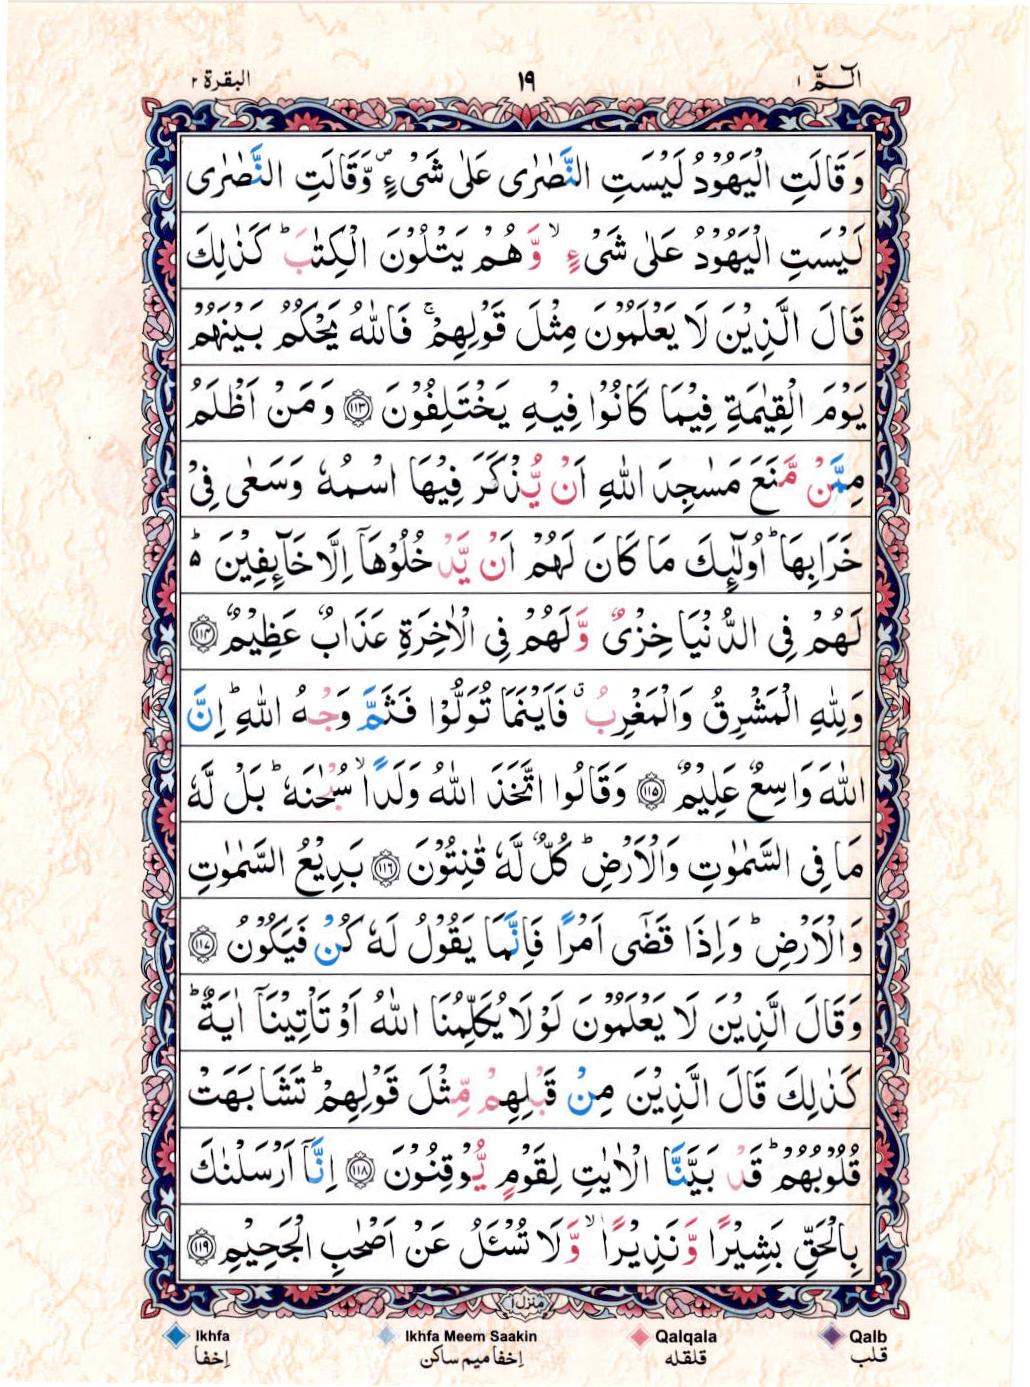 الٓـمّٓ ١ ١٩ البقرة ٢
وَقَالَتِ الْيَهُوْدُ لَيْسَتِ النَّصٰرٰى عَلٰى شَىْءٍ ۪ وَّقَالَتِ النَّصٰرٰى
لَيْسَتِ الْيَهُوْدُ عَلٰى شَىْءٍ ۙ وَّهُمْ يَتْلُوْنَ الْكِتٰبَ ؕ كَذٰلِكَ
قَالَ الَّذِيْنَ لَا يَعْلَمُوْنَ مِثْلَ قَوْلِهِمْ ۚ فَاللّٰهُ يَحْكُمُ بَيْنَهُمْ
يَوْمَ الْقِيٰمَةِ فِيْمَا كَانُوْا فِيْهِ يَخْتَلِفُوْنَ ﴿۱۱۳﴾ وَمَنْ اَظْلَمُ
مِمَّنْ مَّنَعَ مَسٰجِدَ اللّٰهِ اَنْ يُّذْكَرَ فِيْهَا اسْمُهٗ وَسَعٰى فِىْ
خَرَابِهَا ؕ اُولٰٓئِكَ مَا كَانَ لَهُمْ اَنْ يَّدْخُلُوْهَاۤ اِلَّا خَآئِفِيْنَ ؕ۬
لَهُمْ فِى الدُّنْيَا خِزْىٌ وَّلَهُمْ فِى الْاٰخِرَةِ عَذَابٌ عَظِيْمٌ ﴿۱۱۴﴾
وَلِلّٰهِ الْمَشْرِقُ وَالْمَغْرِبُ ۗ فَاَيْنَمَا تُوَلُّوْا فَثَمَّ وَجْهُ اللّٰهِ ؕ اِنَّ
اللّٰهَ وَاسِعٌ عَلِيْمٌ ﴿۱۱۵﴾ وَقَالُوا اتَّخَذَ اللّٰهُ وَلَدًا ۙ سُبْحٰنَهٗ ؕ بَلْ لَّهٗ
مَا فِى السَّمٰوٰتِ وَالْاَرْضِ ؕ كُلٌّ لَّهٗ قٰنِتُوْنَ ﴿۱۱۶﴾ بَدِيْعُ السَّمٰوٰتِ
وَالْاَرْضِ ؕ وَاِذَا قَضٰٓى اَمْرًا فَاِنَّمَا يَقُوْلُ لَهٗ كُنْ فَيَكُوْنُ ﴿۱۱۷﴾
وَقَالَ الَّذِيْنَ لَا يَعْلَمُوْنَ لَوْلَا يُكَلِّمُنَا اللّٰهُ اَوْ تَاْتِيْنَاۤ اٰيَةٌ ؕ
كَذٰلِكَ قَالَ الَّذِيْنَ مِنْ قَبْلِهِمْ مِّثْلَ قَوْلِهِمْ ؕ تَشَابَهَتْ
قُلُوْبُهُمْ ؕ قَدْ بَيَّنَّا الْاٰيٰتِ لِقَوْمٍ يُّوْقِنُوْنَ ﴿۱۱۸﴾ اِنَّاۤ اَرْسَلْنٰكَ
بِالْحَقِّ بَشِيْرًا وَّنَذِيْرًا ۙ وَّلَا تُسْـَٔلُ عَنْ اَصْحٰبِ الْجَحِيْمِ ﴿۱۱۹﴾
منزل ١
Ikhfa Ikhfa Meem Saakin Qalqala Qalb
اِخفا اِخفا میم ساکن قلقله قلب